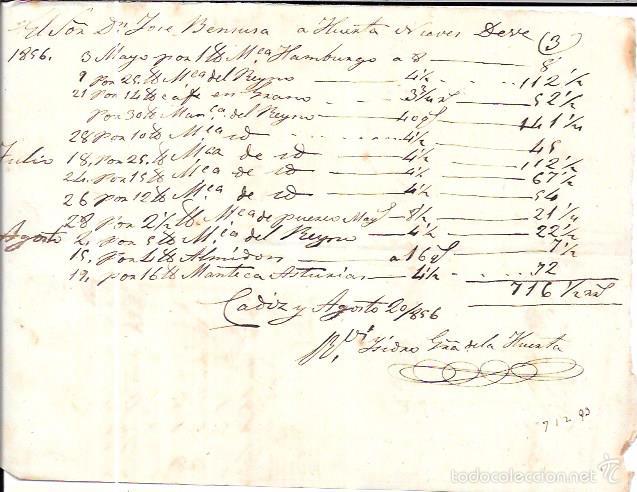 El Sōn Dn Jose Bensusa a Huerta Nieves Deve (3)
1856. 3 Mayo por 1 lb Mca Hamburgo a 8 — 8
9 por 25. lb Mca del Reyno — 4 1/2 — 112 1/2
21 por 14 lb cafe en grano — 3 3/4 — 52 1/2
por 30 lb Mca del Reyno — 40 — 141 1/4
28 por 10 lb Mca id — 4 1/2 — 45
Julio 18. por 25. lb Mca de id — 4 1/2 — 112 1/2
24. por 15 lb Mca de id — 4 1/2 — 67 1/2
26 por 12 lb Mca de id — 4 1/2 — 54
28 por 2 1/2 lb Mca de puerco — 8 1/2 — 21 1/4
Agosto 2. por 5 lb Mca del Reyno — 4 1/2 — 22 1/2
15. por 4 lb Almidon a 16 — 7 1/2
19. por 16 lb Manteca Asturias — 4 1/2 — 72
716 1/2
Cadiz y Agosto 20/856
Isidro Gña de la Huerta
712 93
todocoleccion.net